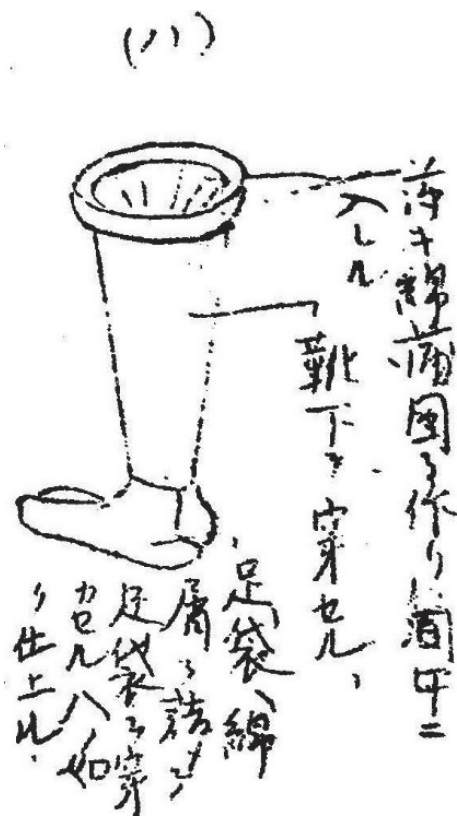 (ハ)
薄キ綿蒲団ヲ作リ筒中ニ
入レル
靴下ヲ穿セル、
足袋、綿
屑ヲ詰メテ
足袋ヲ穿
カセル八如
リ仕上ル.